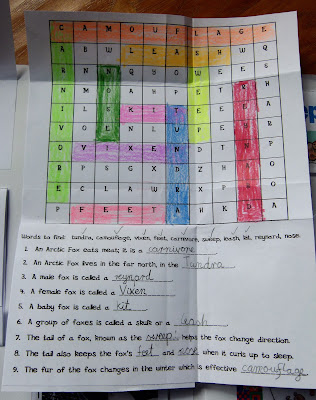 C A M O U F L A G E
A B W L E A S H W Q
R N N Q Y O W E E S
N M O A H P E R
I L S K I T E E A
V O E N L U P E H R
O V I X E N D T N P
R P S G X D Z H O
E C L A W R X P O
P F E E T A H K D
Words to find: tundra, camouflage, vixen, feet, carnivore, sweep, leash, kit, reynard, nose.
1. An Arctic Fox eats meat; it is a carnivore
2. An Arctic Fox lives in the far north, in the Tundra
3. A male fox is called a reynard
4. A female fox is called a Vixen
5. A baby fox is called a Kit
6. A group of foxes is called a skulk or a leash
7. The tail of a fox, known as the sweep helps the fox change direction.
8. The tail also keeps the fox's feet and nose when it curls up to sleep.
9. The fur of the fox changes in the winter which is effective camouflage